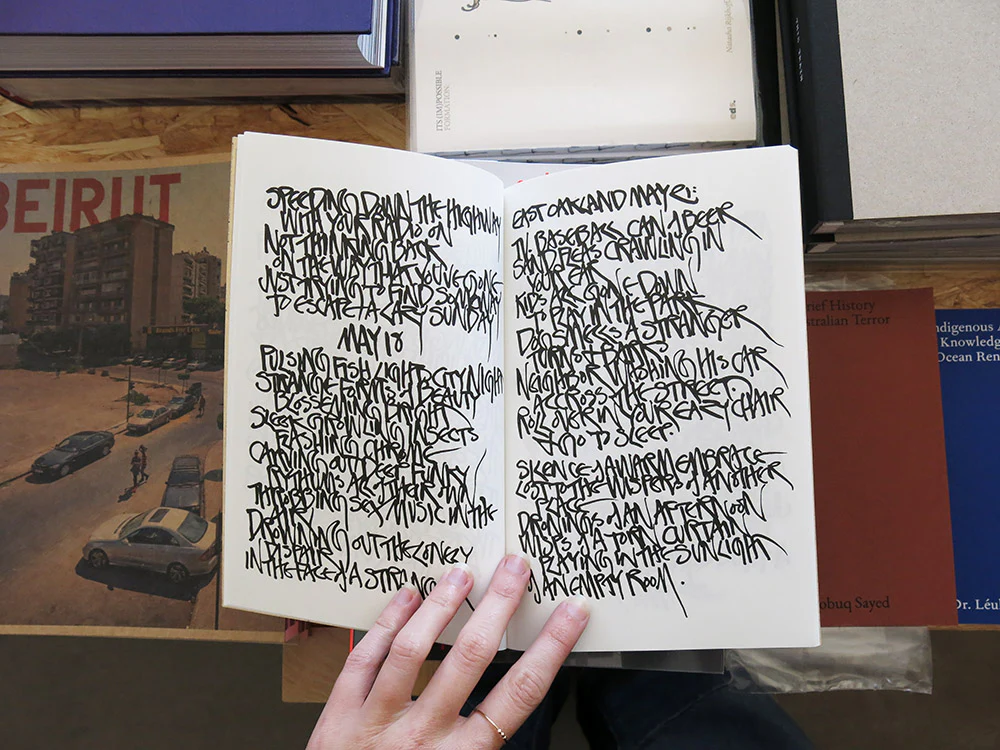 BEIRUT
ITS (IM)POSSIBLE
FORMATION
SPEEDING DOWN THE HIGHWAY
WITH YOUR RADIO ON
NOT THINKING BACK
ON THE WAY THAT YOU'VE GONE
JUST TRYING TO FIND SOMEWAY
TO ESCAPE A LAZY SUNDAY
MAY 18
PULSING FISH LIGHT CITY NIGHT
STRANGE FORMS OF BEAUTY
BLOSSOMING BRIGHT
SLEEK GROWLING INSECTS
FLASHING CHROME
CARVING OUT DEEP FUNKY
RHYTHMS ALL THEIR OWN
THROBBING SEX MUSIC IN THE
DRAIN
DROWNING OUT THE LONELY
IN DISPAIR
IN THE FACE OF A STRANG
EAST OAKLAND MAY 21:
IN BASEBALL CAN OF BEER
SAND FLEAS CRAWLING IN
YOUR EAR
KIDS ARE GONE DOWN
TO PLAY IN THE PARK
DOG SMELLS A STRANGER
TORN OF BARKS
NEIGHBOR WASHING HIS CAR
ACROSS THE STREET.
ROLL OVER IN YOUR EAZY CHAIR
& GO TO SLEEP.
SILENCE OF A WARM EMBRACE
LOST IN THE WISPERS OF ANOTHER
PLACE
DRONINGS OF AN AFTERNOON
WISPS OF A TORN CURTAIN
PLAYING IN THE SUNLIGHT
OF AN EMPTY ROOM.
rief History
stralian Terror
obuq Sayed
ndigenous
Knowledg
Ocean Ren
Dr. Léul